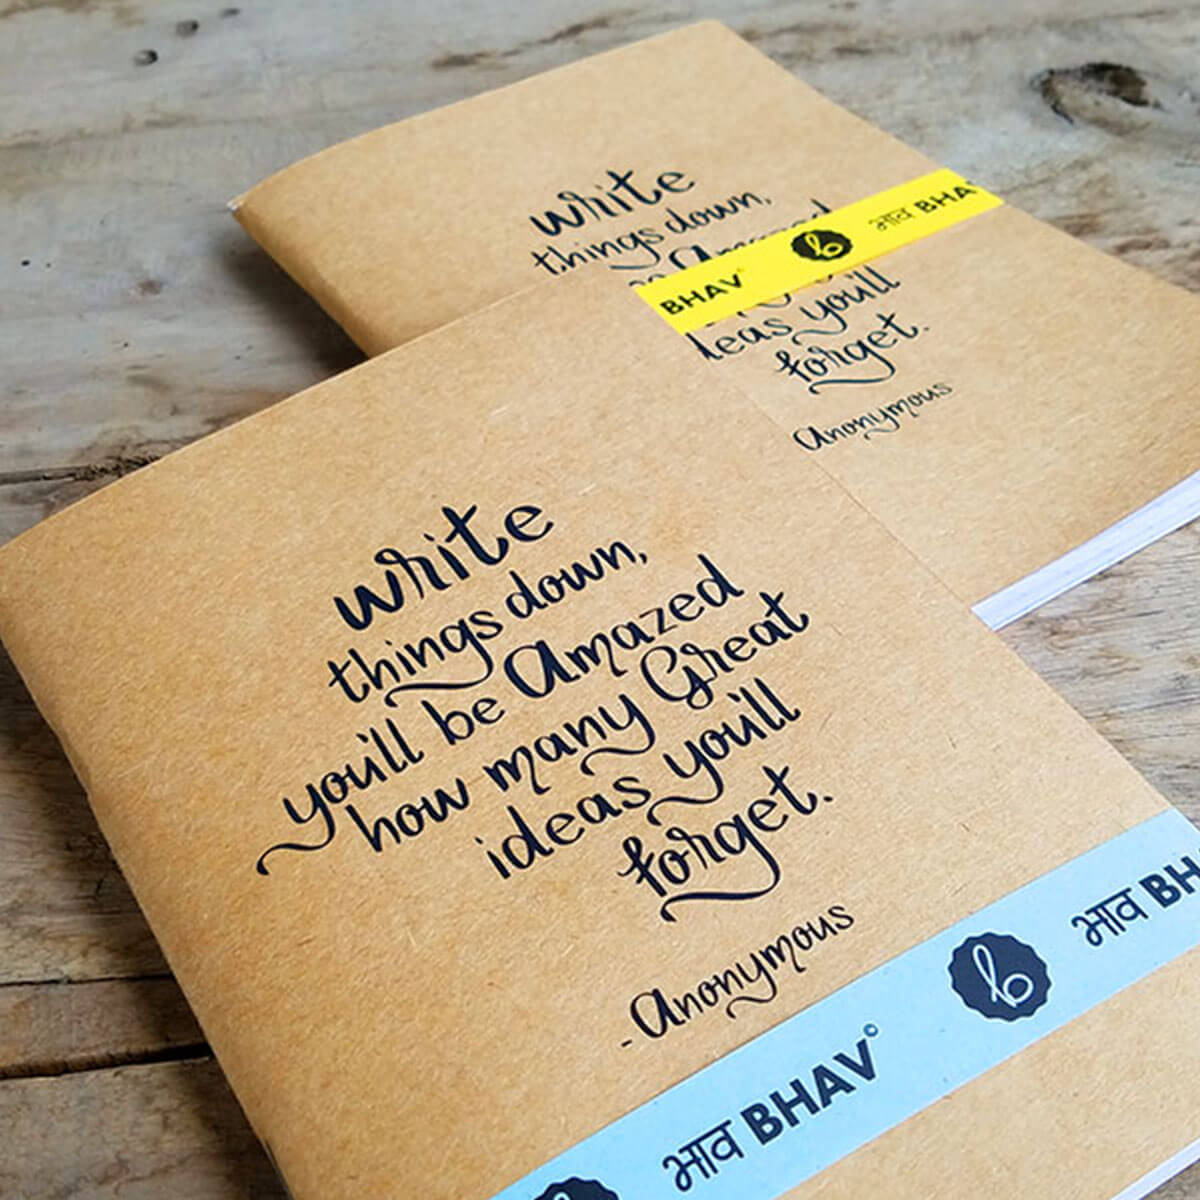 write
things down,
Amazed
ideas you'll
forget.
Anonymous
BHAV
b
भाव BHAV
write
things down,
you'll be Amazed
how many Great
ideas you'll
forget.
-Anonymous
भाव BHAV©
b
भाव